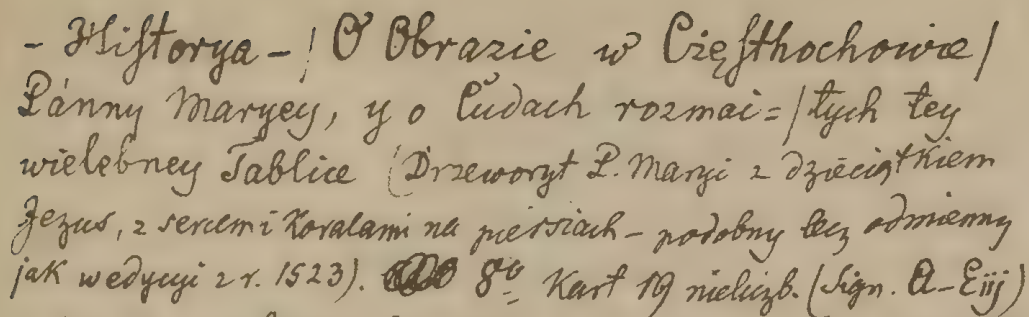 - Hiſtorya - / O Obrazie w Częſthochowie /
Pánny Maryey, y o Cudach rozmai= / tych tey
wielebney Tablice (Drzeworyt P. Maryi z dzieciątkiem
Jezus, z sercem i Koralami na piersiach - podobny lecz odmienny
jak w edycyi z r. 1523). 8º Kart 19 nieliczb. (Sign. A-Eiij)